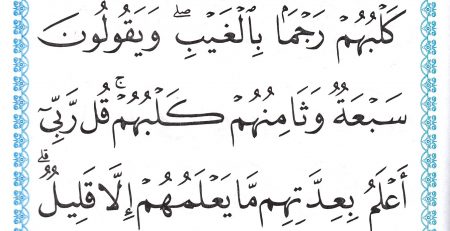 كَلْبُهُمْ رَجْمًۢا بِٱلْغَيْبِ ۖ وَيَقُولُونَ
سَبْعَةٌ وَثَامِنُهُمْ كَلْبُهُمْ ۚ قُل رَّبِّىٓ
أَعْلَمُ بِعِدَّتِهِم مَّا يَعْلَمُهُمْ إِلَّا قَلِيلٌ ۗ